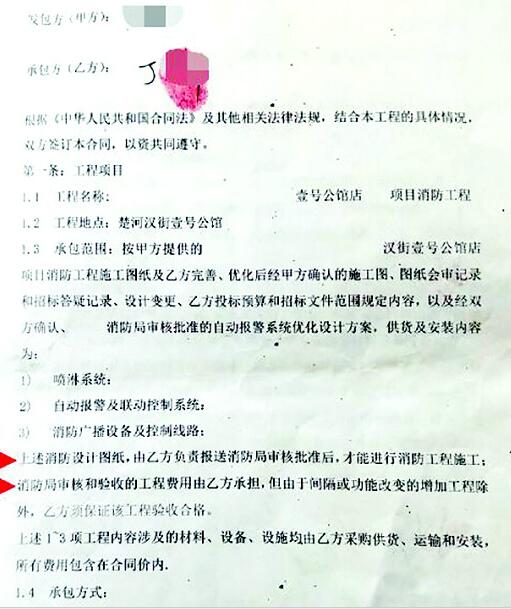 发包方(甲方):
承包方(乙方):
根据《中华人民共和国合同法》及其他相关法律法规,结合本工程的具体情况,
双方签订本合同,以资共同遵守。
第一条:工程项目
1.1 工程名称: 壹号公馆店 项目消防工程
1.2 工程地点:楚河汉街壹号公馆
1.3 承包范围:按甲方提供的 汉街壹号公馆店
项目消防工程施工图纸及乙方完善、优化后经甲方确认的施工图、图纸会审记录
和招标答疑记录、设计变更、乙方投标预算和招标文件范围规定内容,以及经双
方确认、 消防局审核批准的自动报警系统优化设计方案,供货及安装内容
为:
1) 喷淋系统;
2) 自动报警及联动控制系统;
3) 消防广播设备及控制线路;
上述消防设计图纸,由乙方负责报送消防局审核批准后,才能进行消防工程施工;
消防局审核和验收的工程费用由乙方承担,但由于间隔或功能改变的增加工程除
外,乙方须保证该工程验收合格。
上述1~3项工程内容涉及的材料、设备、设施均由乙方采购供货、运输和安装,
所有费用包含在合同价内.
1.4 承包方式: